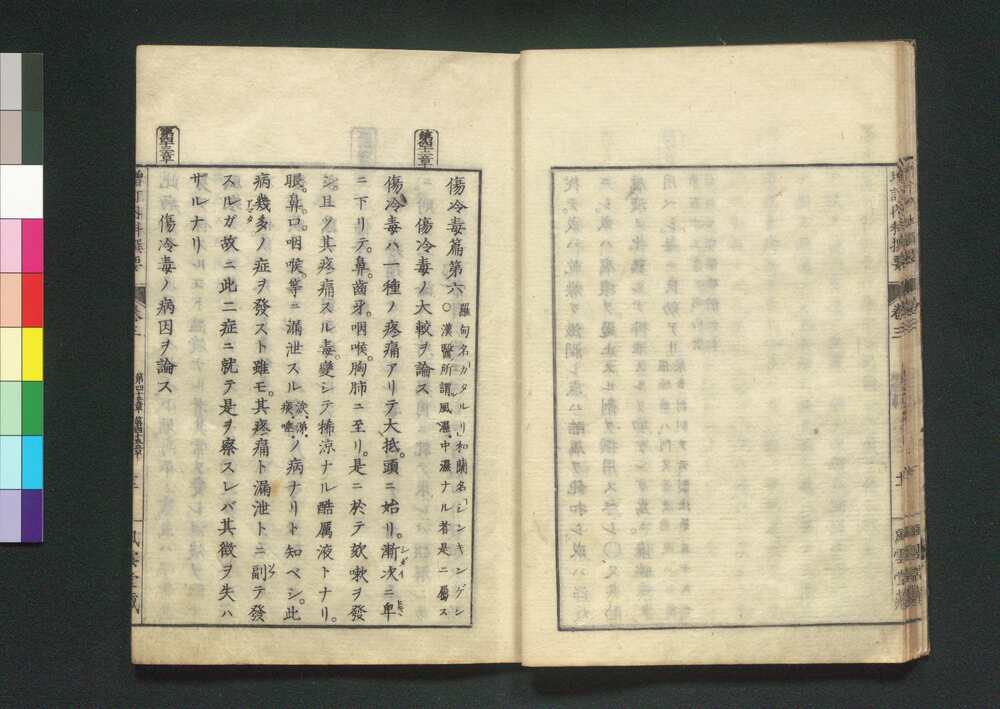 増訂内科撰要
卷三
第四十二章
傷冷毒篇第六
羅甸名「カタルリ」和蘭名「シンキンゲン
〇漢醫所謂風濕、中濕ナル者是ニ屬ス
傷冷毒ノ大較ヲ論ス
傷冷毒ハ一種ノ疼痛アリテ大抵。頭ニ始リ。漸次ニ卑
ニ下リテ。鼻。齒牙。咽喉。胸肺ニ至リ。是ニ於テ欬嗽ヲ發
シ。且ツ其疼痛スル毒。變シテ稀涼ナル酷厲液トナリ。
眼。鼻。口。咽喉。等ニ漏泄スル涙、涕、痰、唾、ノ病ナリト知ベシ。此
病幾多ノ症ヲ發スト雖モ。其疼痛ト漏泄トニ副テ發
スルガ故ニ此二症ニ就テ是ヲ察スレバ其徴ヲ失ハ
ザルナリ
第四十三章
傷冷毒ノ病因ヲ論ス